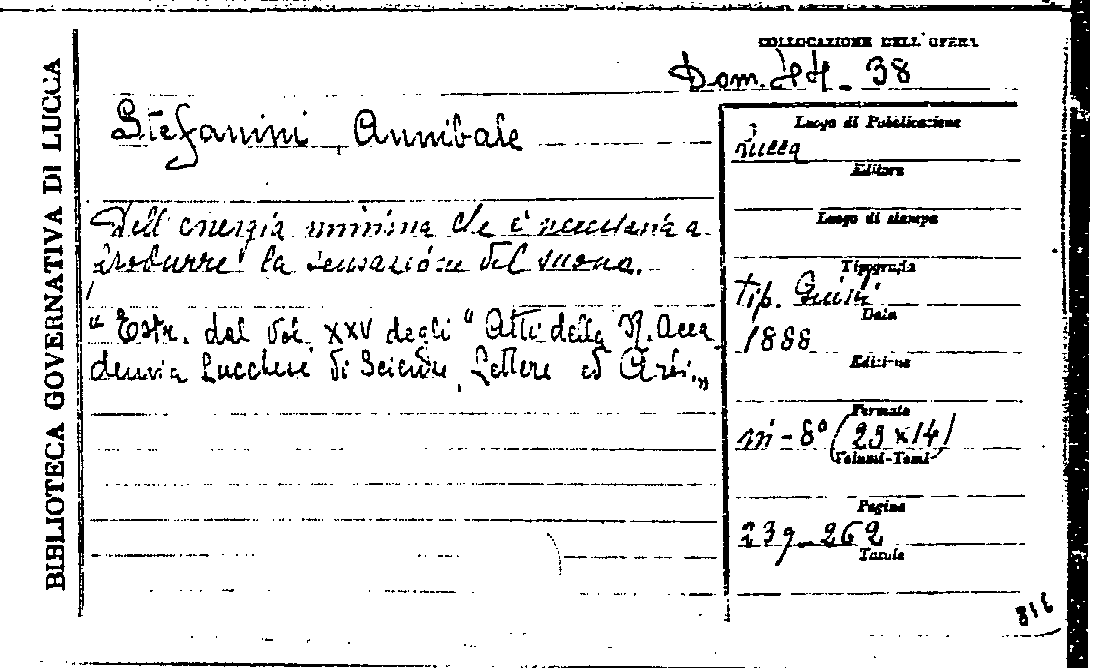 BIBLIOTECA GOVERNATIVA DI LUCCA
COLLOCAZIONE DELL'OPERA
Dom. 44 - 38
Stefanini, Annibale
Dell'energia minima che è necessaria a
produrre la sensazione del suono.
"Estr. dal Vol. XXV degli "Atti della R. Acca
demia Lucchese di Scienze, Lettere ed Arti.„
Luogo di Pubblicazione
Lucca
Editore
Luogo di stampa
Tipografia
tip. Giusti
Data
1888
Edizione
Formato
in-8° (23x14)
Volumi-Tomi
Pagine
239-262
Tavole